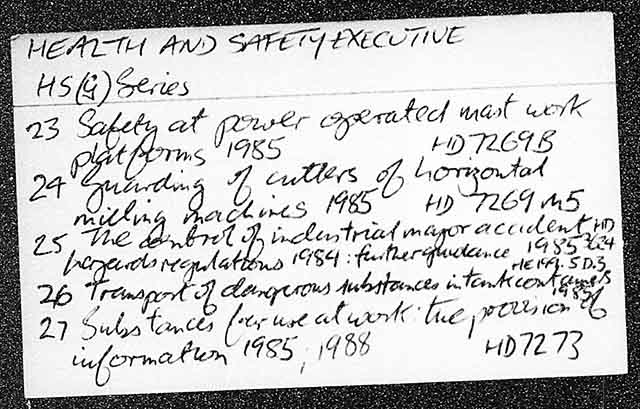 HEALTH AND SAFETY EXECUTIVE
HS(G) Series
23 Safety at power operated mast work
platforms 1985 HD7269B
24 Guarding of cutters of horizontal
milling machines 1985 HD 7269 M5
25 The control of industrial major accident HD
hazards regulations 1984: further guidance 1985
26 Transport of dangerous substances in tank containers
HE199.5D3 1985
27 Substances for use at work: the provision of
information 1985, 1988 HD7273